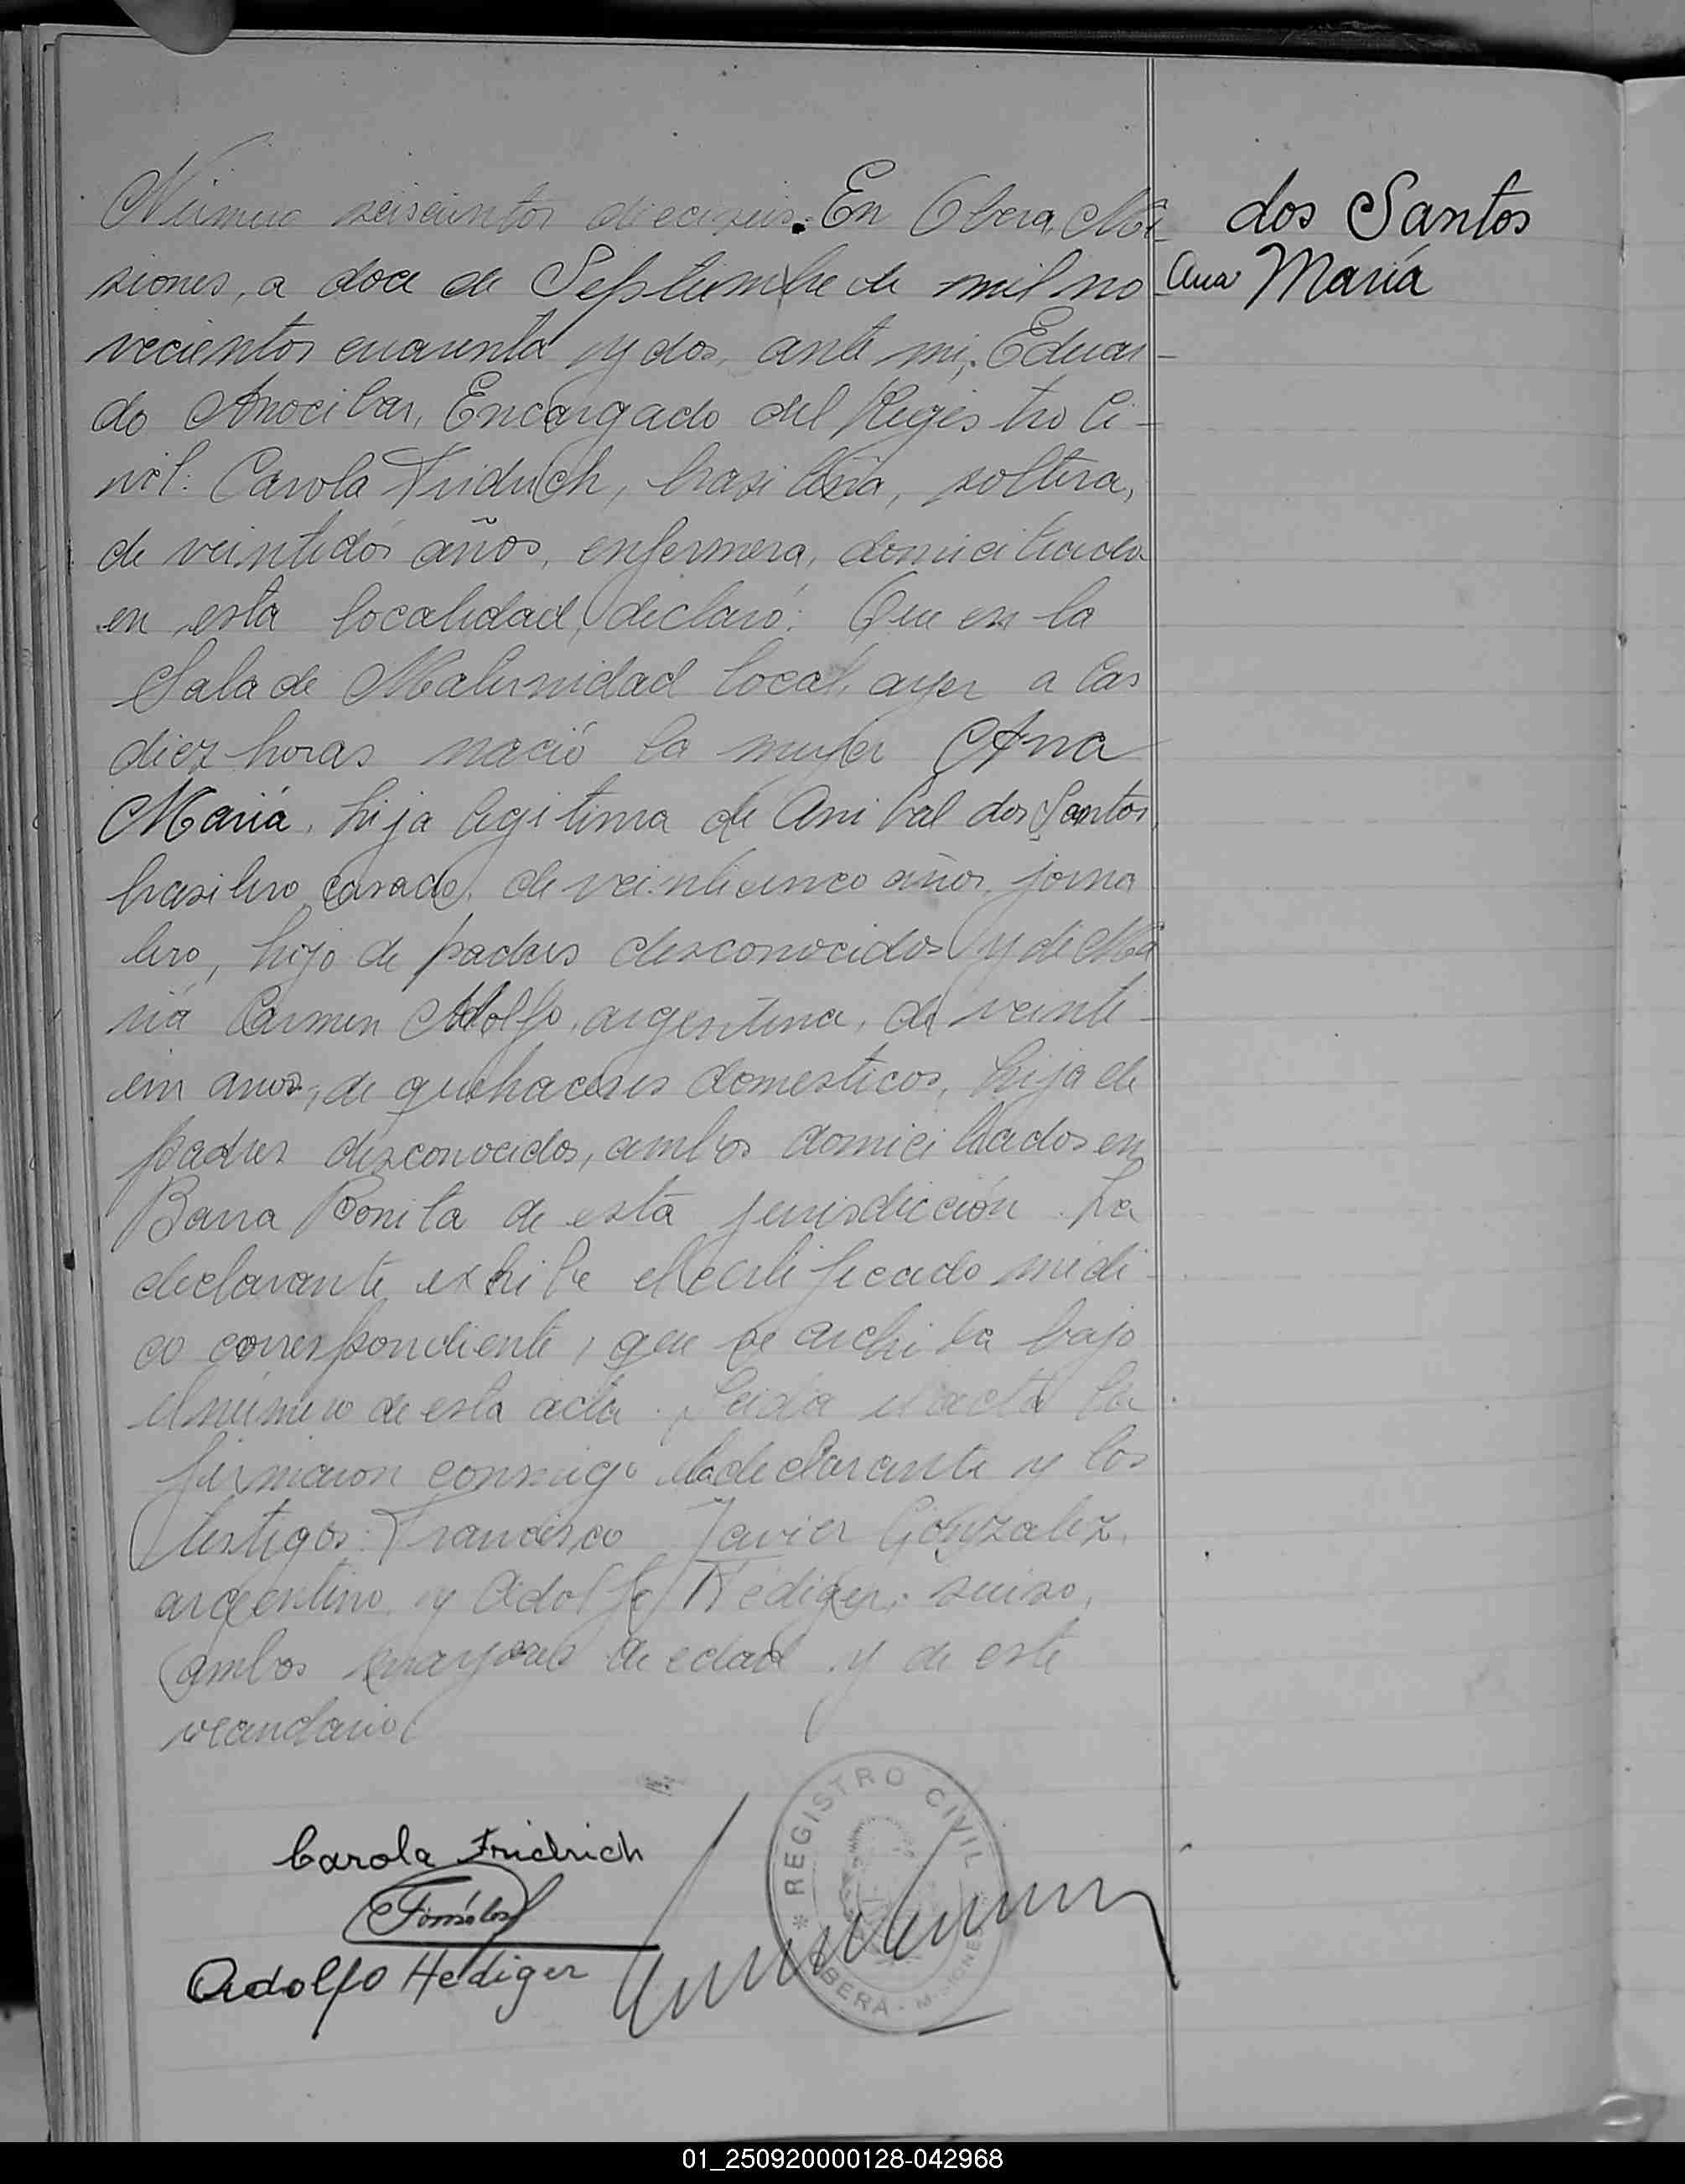 Número seiscientos dieciseis. En Oberá, Mi-
siones, a doce de Septiembre de mil no
vecientos cuarenta y dos, ante mi, Eduar-
do Anocibar, Encargado del Registro Ci-
vil: Carola Fridrich, brasileña, soltera,
de veintidós años, enfermera, domiciliada
en esta localidad, declaró: Que en la
Sala de Maternidad local, ayer a las
diez horas nació la mujer Ana
María, hija legitima de Anibal dos Santos,
brasilero, casado, de veinticinco años, jorna
lero, hijo de padres desconocidos y de Ma
ría Carmen Adolfo, argentina, de veinti-
ún años, de quehaceres domesticos, hija de
padres desconocidos, ambos domiciliados en
Barra Bonita de esta jurisdicción. La
declarante exhibe el certificado médi-
co correspondiente, que se archiva bajo
el número de esta acta. Leida el acta la
firmaron conmigo la declarante y los
testigos: Francisco Javier González,
argentino y Adolfo Hediger, suizo,
ambos mayores de edad y de este
vecindario
dos Santos
Ana María
Carola Fridrich
Adolfo Hediger
REGISTRO CIVIL
OBERÁ - MISIONES
01_250920000128-042968